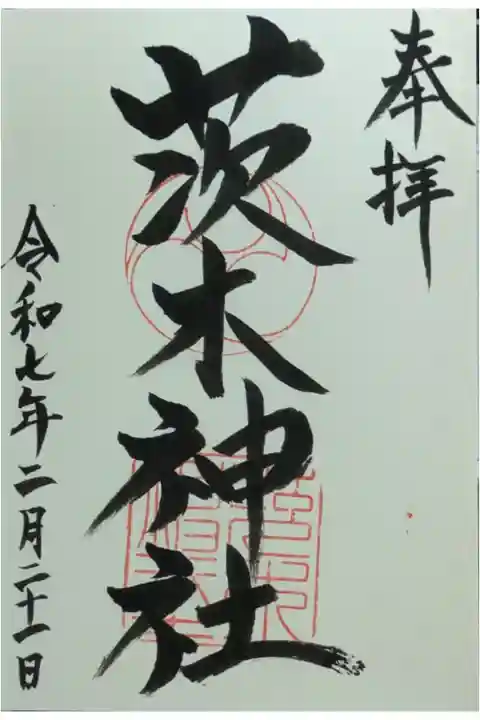 奉拝
茨木神社
令和七年二月二十一日